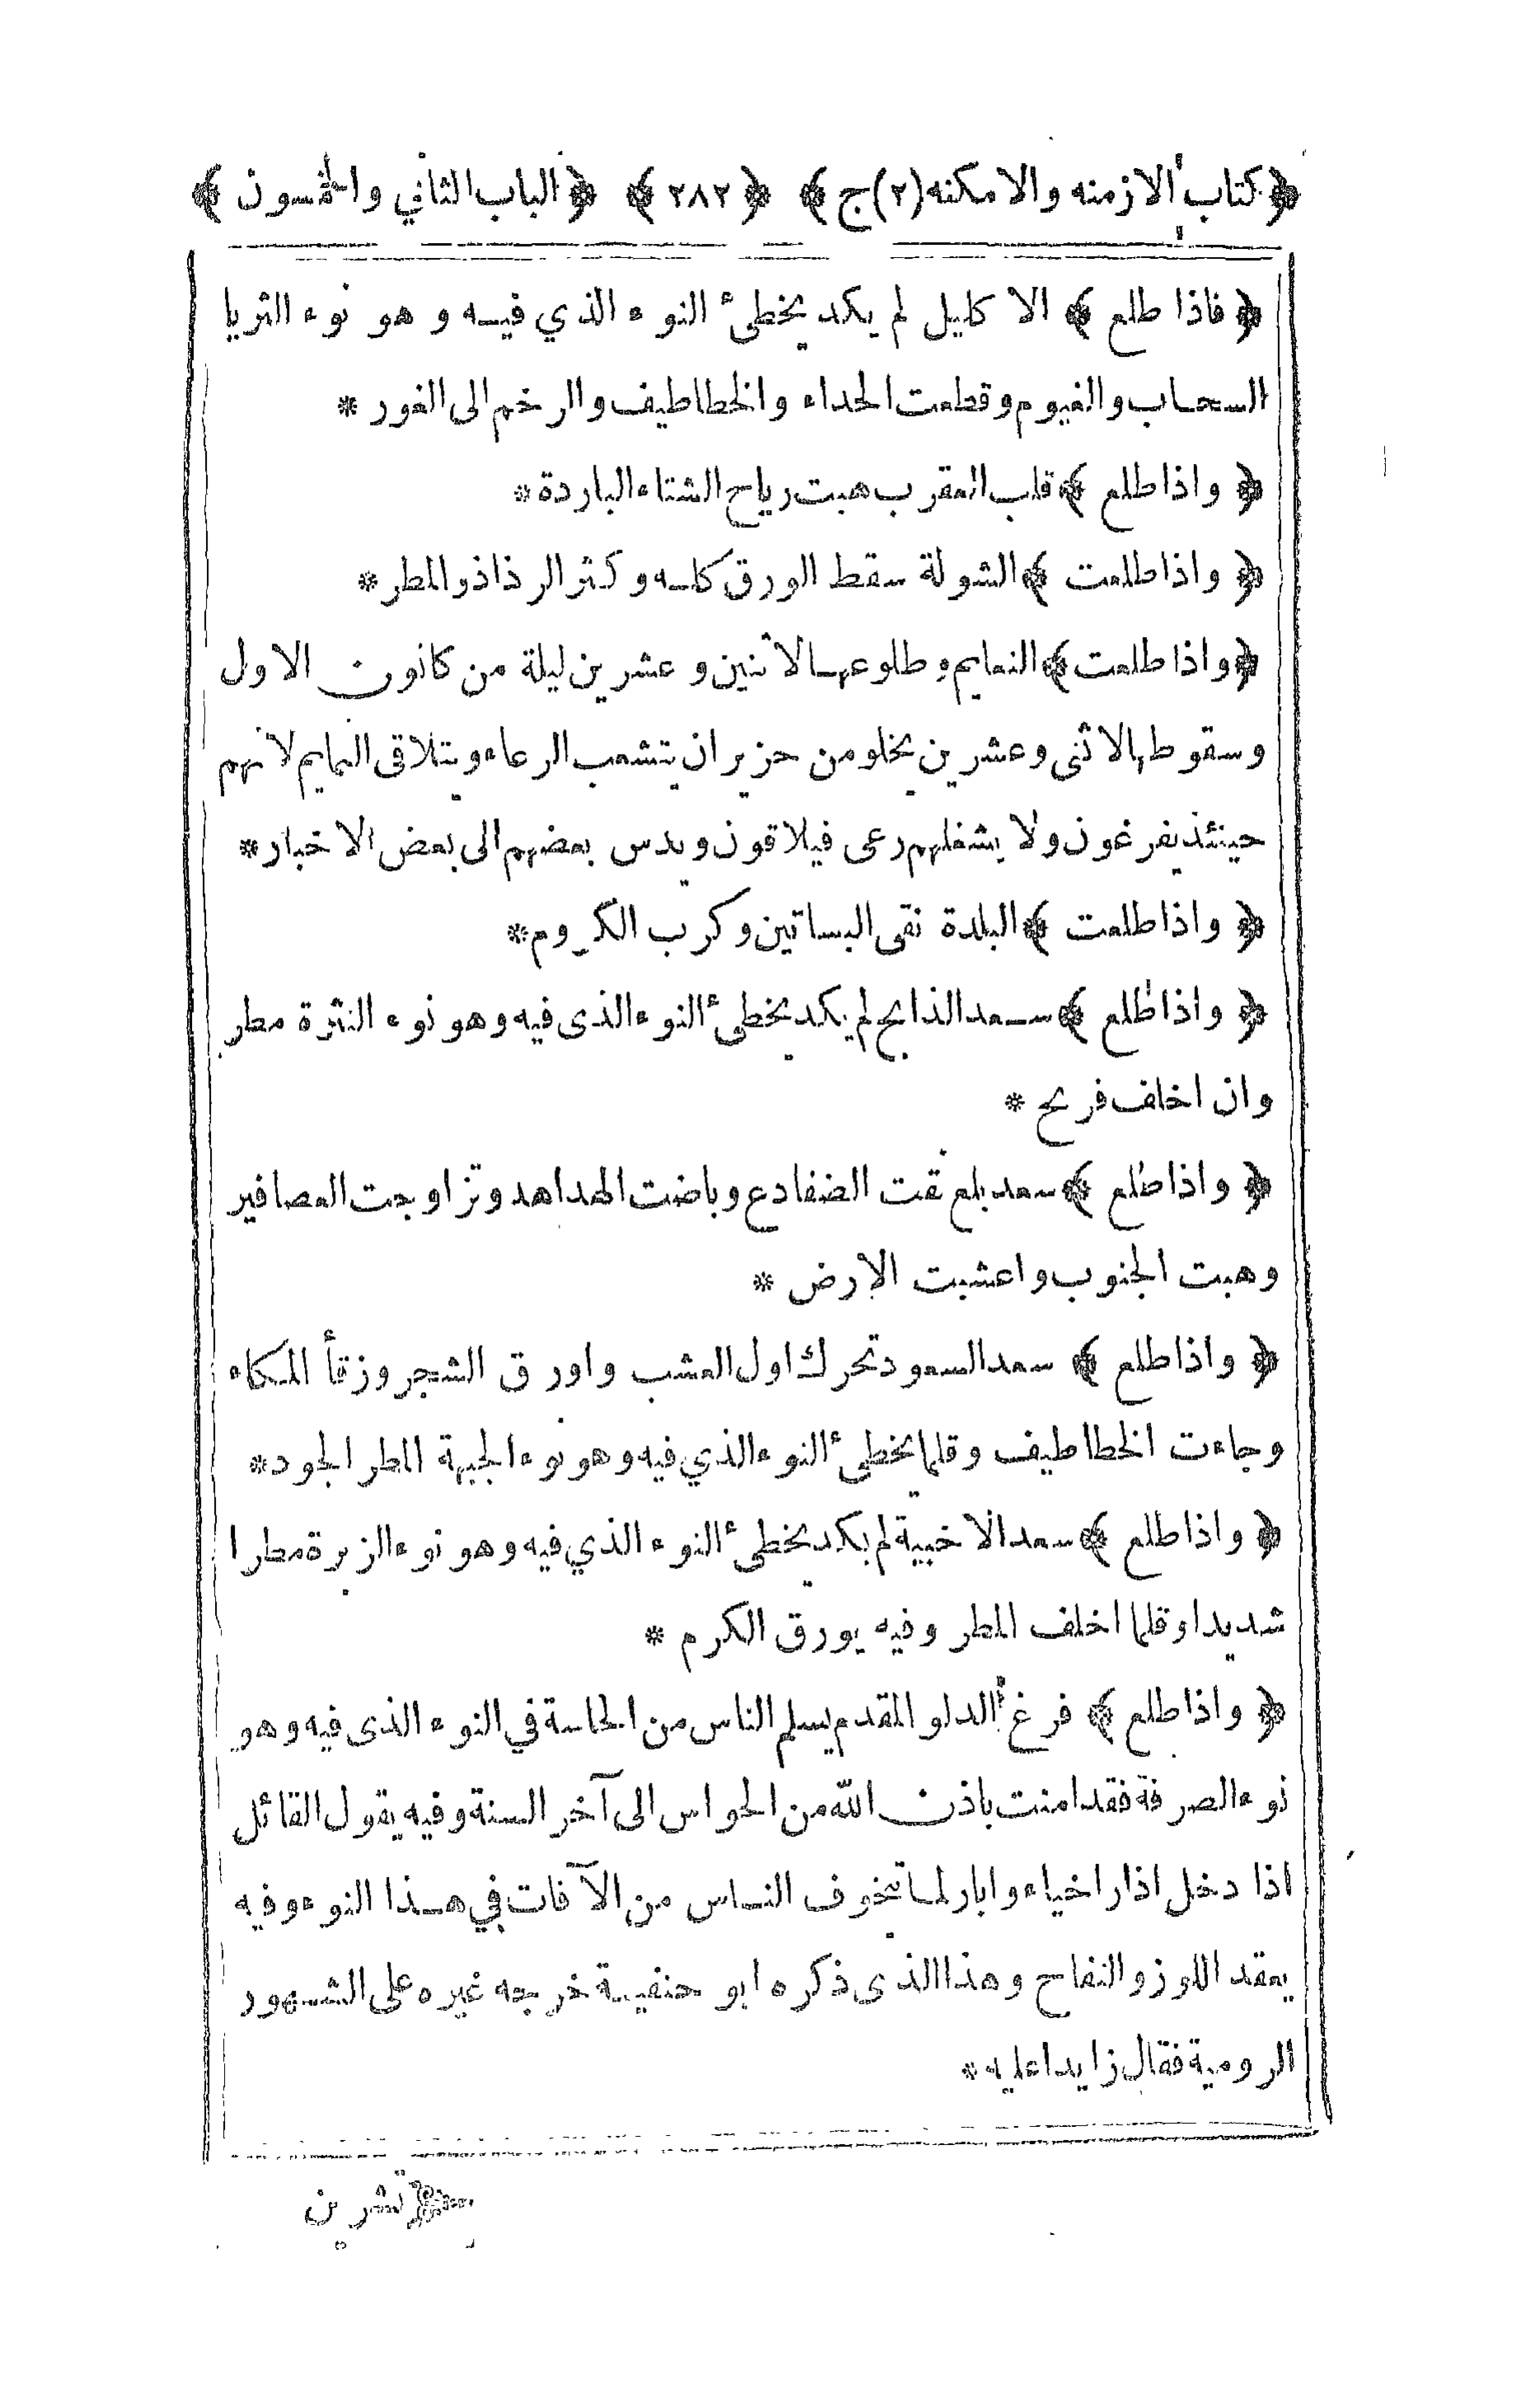 ﴿كتاب الازمنه والامكنه(٢)ج﴾ ﴿٢٨٢﴾ ﴿الباب الثاني والخمسون﴾
﴿فاذا طلع﴾ الاكليل لم يكد يخطئ النوء الذي فيه وهو نوء الثريا
السحاب والغيوم وقطعت الحداء والخطاطيف والرخم الى الغور *
﴿واذا طلع﴾ قلب العقرب هبت رياح الشتاء الباردة *
﴿واذا طلعت﴾ الشولة سقط الورق كله وكثر الرذاذ والمطر *
﴿واذا طلعت﴾ النعايم وطلوعها لاثنين وعشرين ليلة من كانون الاول
وسقوطها لاثنى وعشرين يخلو من حزيران يتشعب الرعاء ويتلاقى النمايم لانهم
حينئذ يفرغون ولا يشغلهم رعى فيلاقون ويدس بعضهم الى بعض الاخبار *
﴿واذا طلعت﴾ البلدة نقى البساتين وكرب الكروم *
﴿واذا طلع﴾ سعد الذابح لم يكد يخطئ النوء الذى فيه وهو نوء النثرة مطر
وان اخلف فريح *
﴿واذا طلع﴾ سعد بلع نقت الضفادع وباضت الهداهد وتزاوجت العصافير
وهبت الجنوب واعشبت الارض *
﴿واذا طلع﴾ سعد السعود تحرك اول العشب واورق الشجر وزقأ المكاء
وجاءت الخطاطيف وقلما يخطئ النوء الذي فيه وهو نوء الجبهة المطر الجود *
﴿واذا طلع﴾ سعد الاخبية لم يكد يخطئ النوء الذي فيه وهو نوء الزبرة مطرا
شديدا وقلما اخلف المطر وفيه يورق الكرم *
﴿واذا طلع﴾ فرغ الدلو المقدم يسلم الناس من الحاسة في النوء الذى فيه وهو
نوء الصرفة فقد امنت باذن الله من الحواس الى آخر السنة وفيه يقول القائل
اذا دخل اذار اخياء وابار لما تخوف الناس من الآفات في هذا النوء وفيه
يعقد اللوز والتفاح وهذا الذى ذكره ابو حنفية خرجه غيره على الشهور
الرومية فقال زايدا عليه *
تشرين